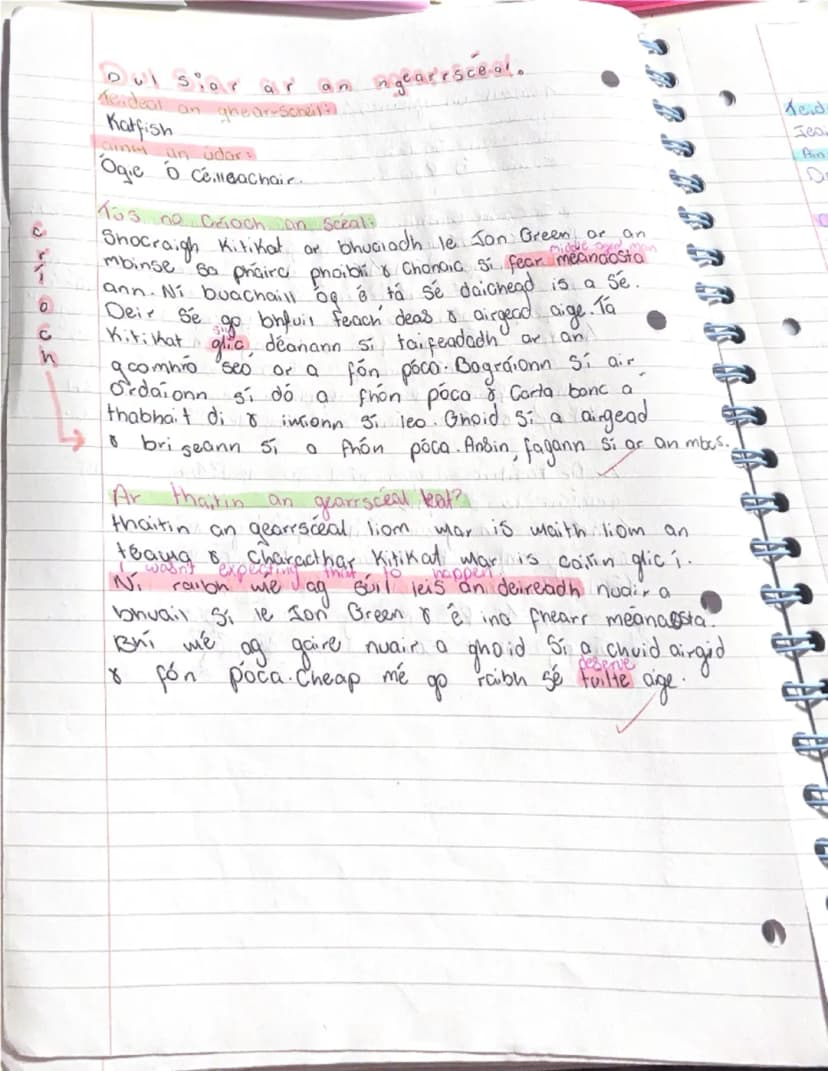 Dul siar ar an ngearrscéal.
Teideal an ghearr-scéil:
Katfish
ainm an údar:
Ógie Ó Céilleachair.
Tús nó Críoch an Scéal:
Shocraigh Kitikat ar bhualadh le Jon Green ar an
middle aged man
mbinse sa pháirc phoiblí & Chonaic sí fear meánaosta
ann. Ní buachaill óg é tá sé daichead is a sé.
Deir sé go bhfuil teach deas & airgead aige. Tá
sly
Kitikat glic, déanann sí taifeadadh ar an
gcomhrá seo ar a fón póca. Bagraíonn sí air
Ordaíonn sí dó a fhón póca & Carta banc a
thabhait di & imíonn sí leo. Ghoid sí a airgead
& briseann sí a fhón póca. Ansin, fágann sí ar an mbus.
críoch
Ar thaitin an gearrscéal leat?
thaitin an gearrscéal liom mar is maith liom an
téama & Charachtar Kitikat mar is cailín glic í.
I wasn't expecting this to happen
Ní raibh mé ag súil leis an deireadh nuair a
bhuail sí le Jon Green & é ina fhearr méanaosta.
Bhí mé ag gáire nuair a ghoid sí a chuid airgid
deserve
& fón póca. Cheap mé go raibh sé tuillte aige.